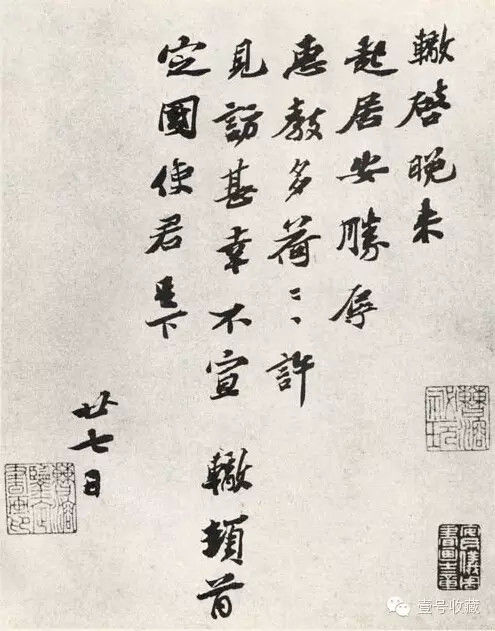 轍啓晚來
起居安勝辱
惠教多荷〻許
見訪甚幸不宣 轍頓首
定國使君足下
廿七日
壹号收藏